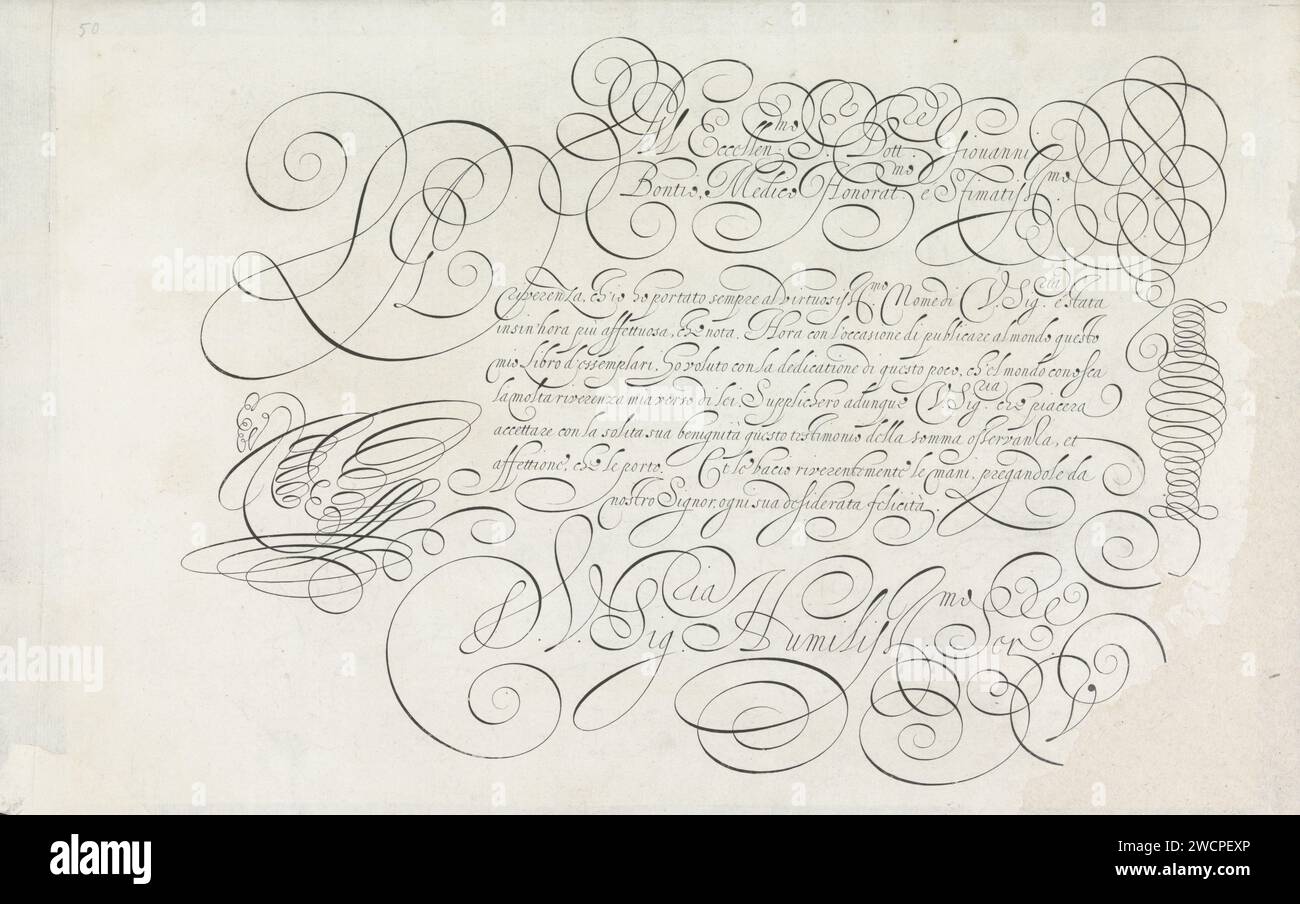 50
All Eccellen.mo S.re Dott.re Giovanni
Bontio, Medico Honorat.mo e Stimatiss.mo
La riverenza, ch'io ho portato sempre al virtuosiss.mo Nome di V. Sig.ria è stata
insin'hora più affettuosa, che nota. Hora con l'occasione di publicare al mondo questo
mio libro d'essemplari, ho voluto con la dedicatione di questo poco, ch'el mondo conosca
la molta riverenza mia verso di lei. Supplichero adunque V. Sig.ria che piacera
accettare con la solita sua benignità questo testimonio della somma osservanza, et
affettione, che le porto. Et le bacio riverentemente le mani, pregandole da
nostro Signor, ogni sua desiderata felicità.
D. V. Sig.ria Humiliss.mo Ser.re
alamy
Image ID: 2WCPEXP
www.alamy.com